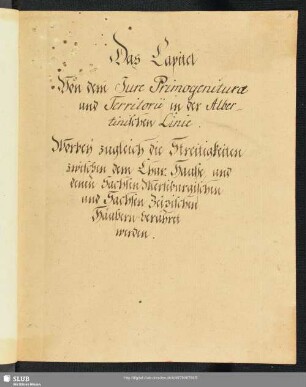 Das Capitel
Von dem Jure Primogenitura
und Territorii in der Alber-
tinischen Linie.
Worbeÿ zugleich die Streitigkeiten
zwischen dem Chur-Hauße und
denen Sachsen Merseburgischen
und Sachsen Zeizischen
Häußern berühret
werden.
SLUB
Wir führen Wissen.